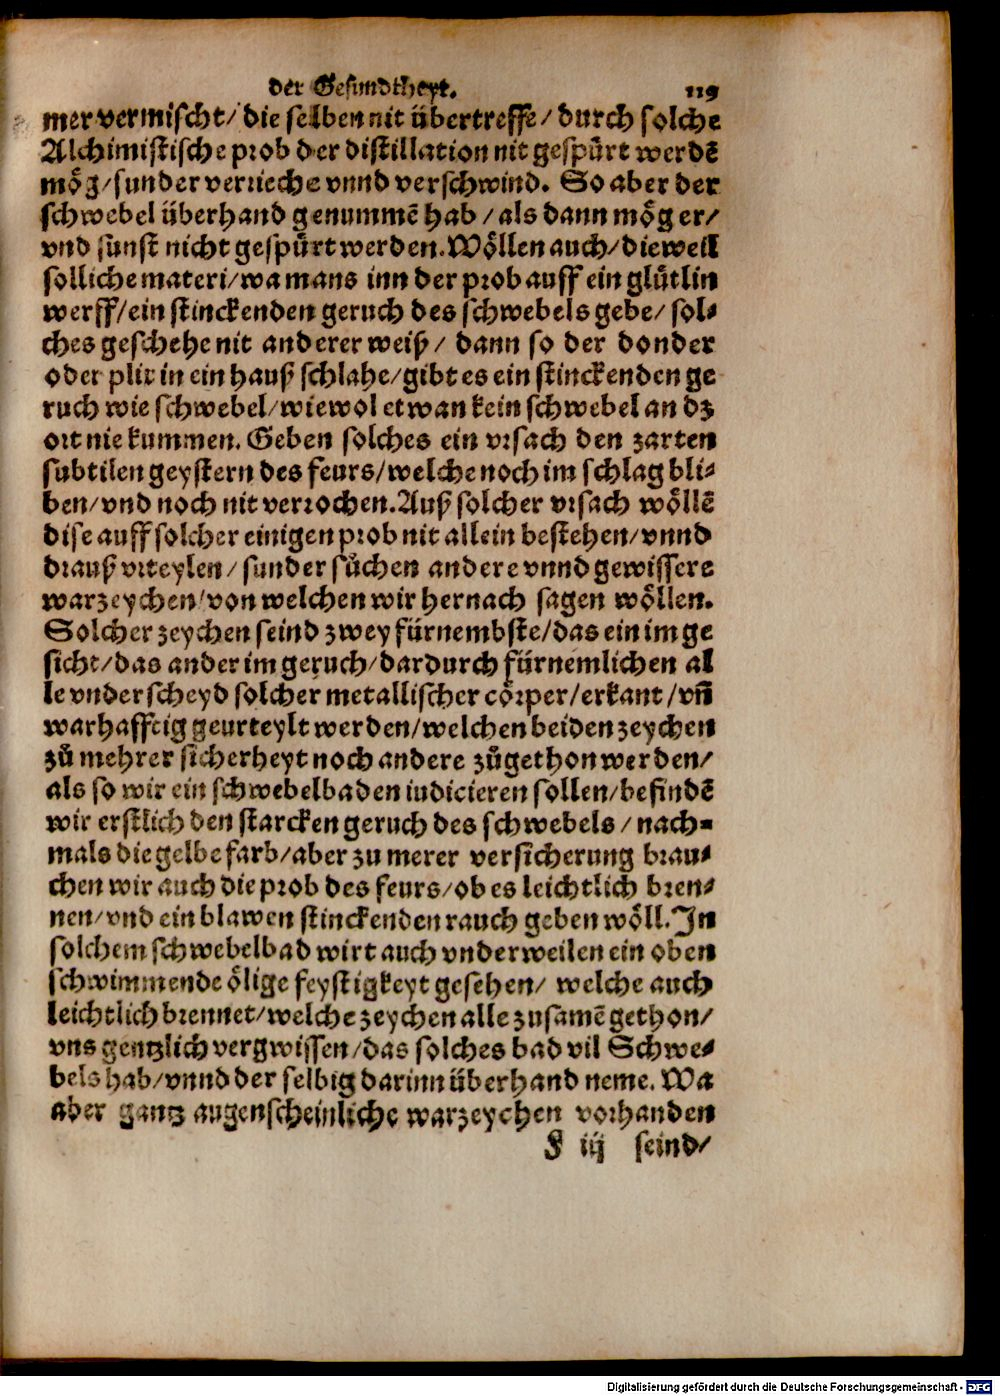 der Gesundtheyt. 119
mer vermischt/ die selben nit übertreffe/ durch solche
Alchimistische prob der distillation nit gespuͤrt werdẽ
moͤg/ sunder verrieche vnnd verschwind. So aber der
schwebel überhand genummẽ hab/ als dann moͤg er/
vnd sunst nicht gespuͤrt werden. Woͤllen auch/ dieweil
solliche materi/ wa mans inn der prob auff ein gluͤtlin
werff/ ein stinckenden geruch des schwebels gebe/ sol⸗
ches geschehe nit anderer weiß/ dann so der donder
oder plix in ein hauß schlahe/ gibt es ein stinckenden ge
ruch wie schwebel/ wiewol etwan kein schwebel an dz
ort nie kummen. Geben solches ein vrsach den zarten
subtilen geystern des feurs/ welche noch im schlag bli⸗
ben/ vnd noch nit verrochen. Auß solcher vrsach woͤllẽ
dise auff solcher einigen prob nit allein bestehen/ vnnd
drauß vrteylen/ sunder suͤchen andere vnnd gewissere
warzeychen/ von welchen wir hernach sagen woͤllen.
Solcher zeychen seind zwey fürnembste/ das ein im ge
sicht/ das ander im geruch/ dardurch fürnemlichen al
le vnderscheyd solcher metallischer coͤrper/ erkant/ vñ
warhafftig geurteylt werden/ welchen beiden zeychen
zuͦ mehrer sicherheyt noch andere zuͦgethon werden/
als so wir ein schwebelbaden iudicieren sollen/ befindẽ
wir erstlich den starcken geruch des schwebels/ nach⸗
mals die gelbe farb/ aber zu merer versicherung brau⸗
chen wir auch die prob des feurs/ ob es leichtlich bren⸗
nen/ vnd ein blawen stinckenden rauch geben woͤll. In
solchem schwebelbad wirt auch vnderweilen ein oben
schwimmende oͤlige feystigkeyt gesehen/ welche auch
leichtlich brennet/ welche zeychen alle zusamẽ gethon/
vns gentzlich vergwissen/ das solches bad vil Schwe⸗
bels hab/ vnnd der selbig darinn überhand neme. Wa
aber gantz augenscheinliche warzeychen vorhanden
iij seind/
Digitalisierung gefördert durch die Deutsche Forschungsgemeinschaft - DFG